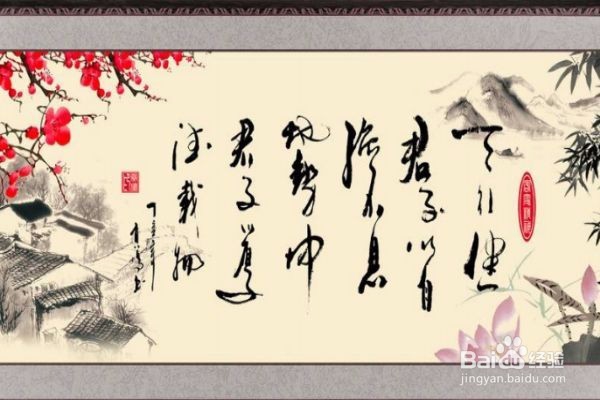 天行健
君子以自
强不息
地勢坤
君子以厚
德載物
Baidu 经验
jingyan.baidu.com